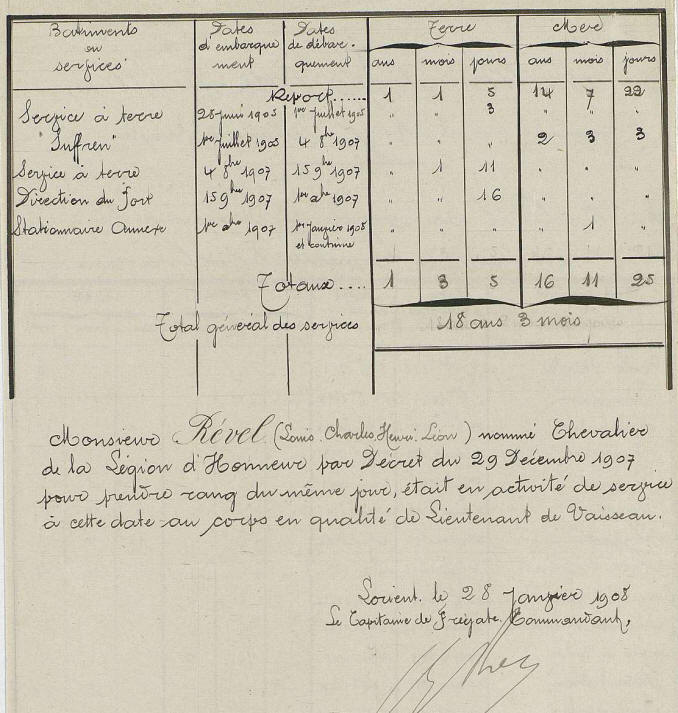 Batiments ou services Dates d'embarquement Dates de débarquement Terre Mer
ans mois jours ans mois jours
Report...... 1 1 5 14 7 22
Service à terre 28 juin 1905 1er Juillet 1905 " " 3 " " "
"Suffren" 1er juillet 1905 4 8bre 1907 " " " 2 3 3
Service à terre 4 8bre 1907 15 9bre 1907 " 1 11 " " "
Direction du Port 15 9bre 1907 1er Xbre 1907 " " 16 " " "
Stationnaire Annexe 1er Xbre 1907 1er Janvier 1908 et continue " " " " 1 "
Totaux.... 1 3 5 16 11 25
Total général des services 18 ans 3 mois
Monsieur Révél (Louis. Charles, Henri. Léon) nommé Chevalier
de la Légion d'Honneur par Décret du 29 Décembre 1907
pour prendre rang du même jour, était en activité de service
à cette date au corps en qualité de Lieutenant de Vaisseau.
Lorient. le 28 Janvier 1908
Le Capitaine de Frégate. Commandant,